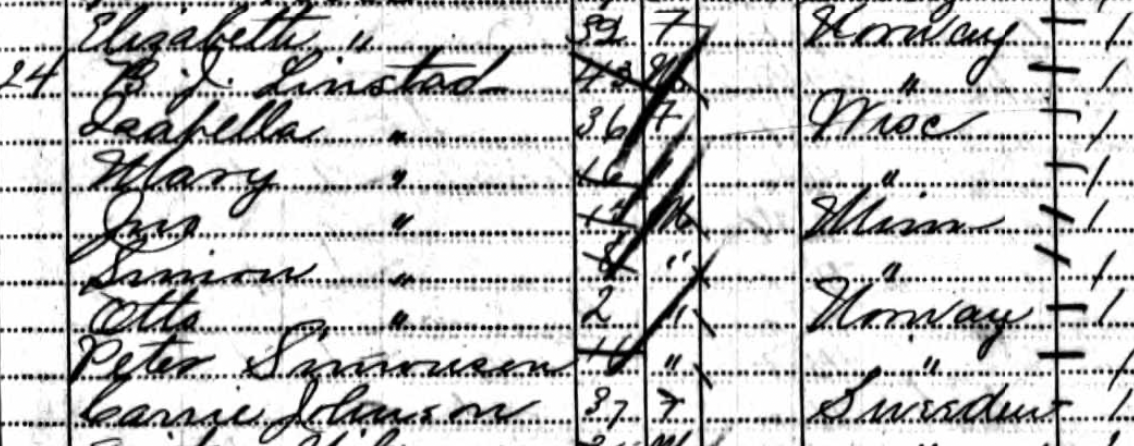 Elizabeth " 32 7 Norway 1
24 B. J. Linstad 43 M " 1
Isabella " 36 7 Wisc 1
Mary " 16 " " 1
Jno " M Minn 1
Simon " 8 " " 1
Otto " 2 " Norway 1
Peter Simonson " " 1
Carrie Johnson 37 7 Sweden 1